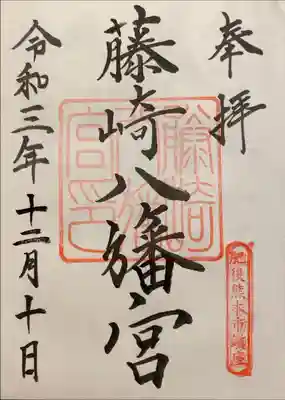 奉拝
肥後熊本市鎮座
藤崎八旛宮
藤崎八旛宮印
令和三年十二月十日